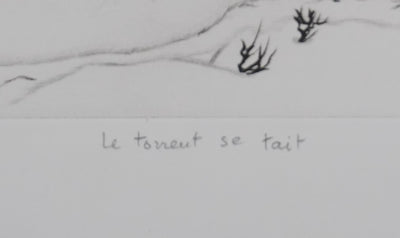 Le torrent se tait